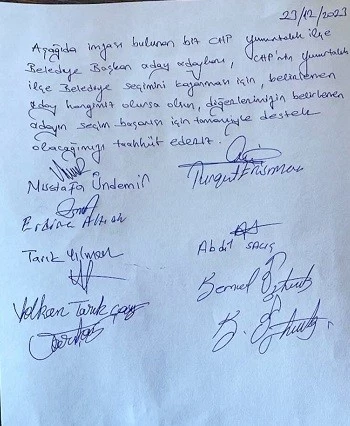 23/12/2023
Aşağıda imzası bulunan biz CHP Yumurtalık ilçe
Belediye Başkan aday adayları, CHP'nin Yumurtalık
ilçe Belediye seçimini kazanması için, belirlenen
aday hangimiz olursa olsun, diğerlerimizin belirlenen
adayın seçim başarısı için tamamiyle destek
olacağımızı taahhüt ederiz.
Mustafa Ündemir
Turgut
Tarık
Abdil
Volkan Tarık
B.